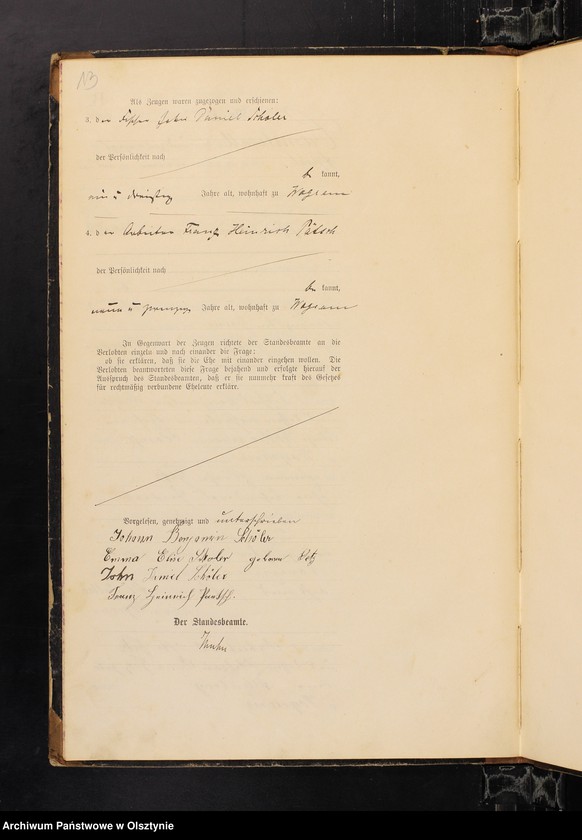 13
Als Zeugen waren zugezogen und erschienen:
3. der Fischer John Daniel Schöler
der Persönlichkeit nach
be kannt,
ein u dreißig Jahre alt, wohnhaft zu
4. der Arbeiter Franz Heinrich
der Persönlichkeit nach
be kannt,
neun u zwanzig Jahre alt, wohnhaft zu
In Gegenwart der Zeugen richtete der Standesbeamte an die
Verlobten einzeln und nach einander die Frage:
ob sie erklären, daß sie die Ehe mit einander eingehen wollen. Die
Verlobten beantworteten diese Frage bejahend und erfolgte hierauf der
Ausspruch des Standesbeamten, daß er sie nunmehr kraft des Gesetzes
für rechtmäßig verbundene Eheleute erkläre.
Vorgelesen, genehmigt und unterschrieben
Johann Benjamin Schöler
Emma Elise Schöler geborene
John Schöler
Franz Heinrich
Der Standesbeamte.
Archiwum Państwowe w Olsztynie